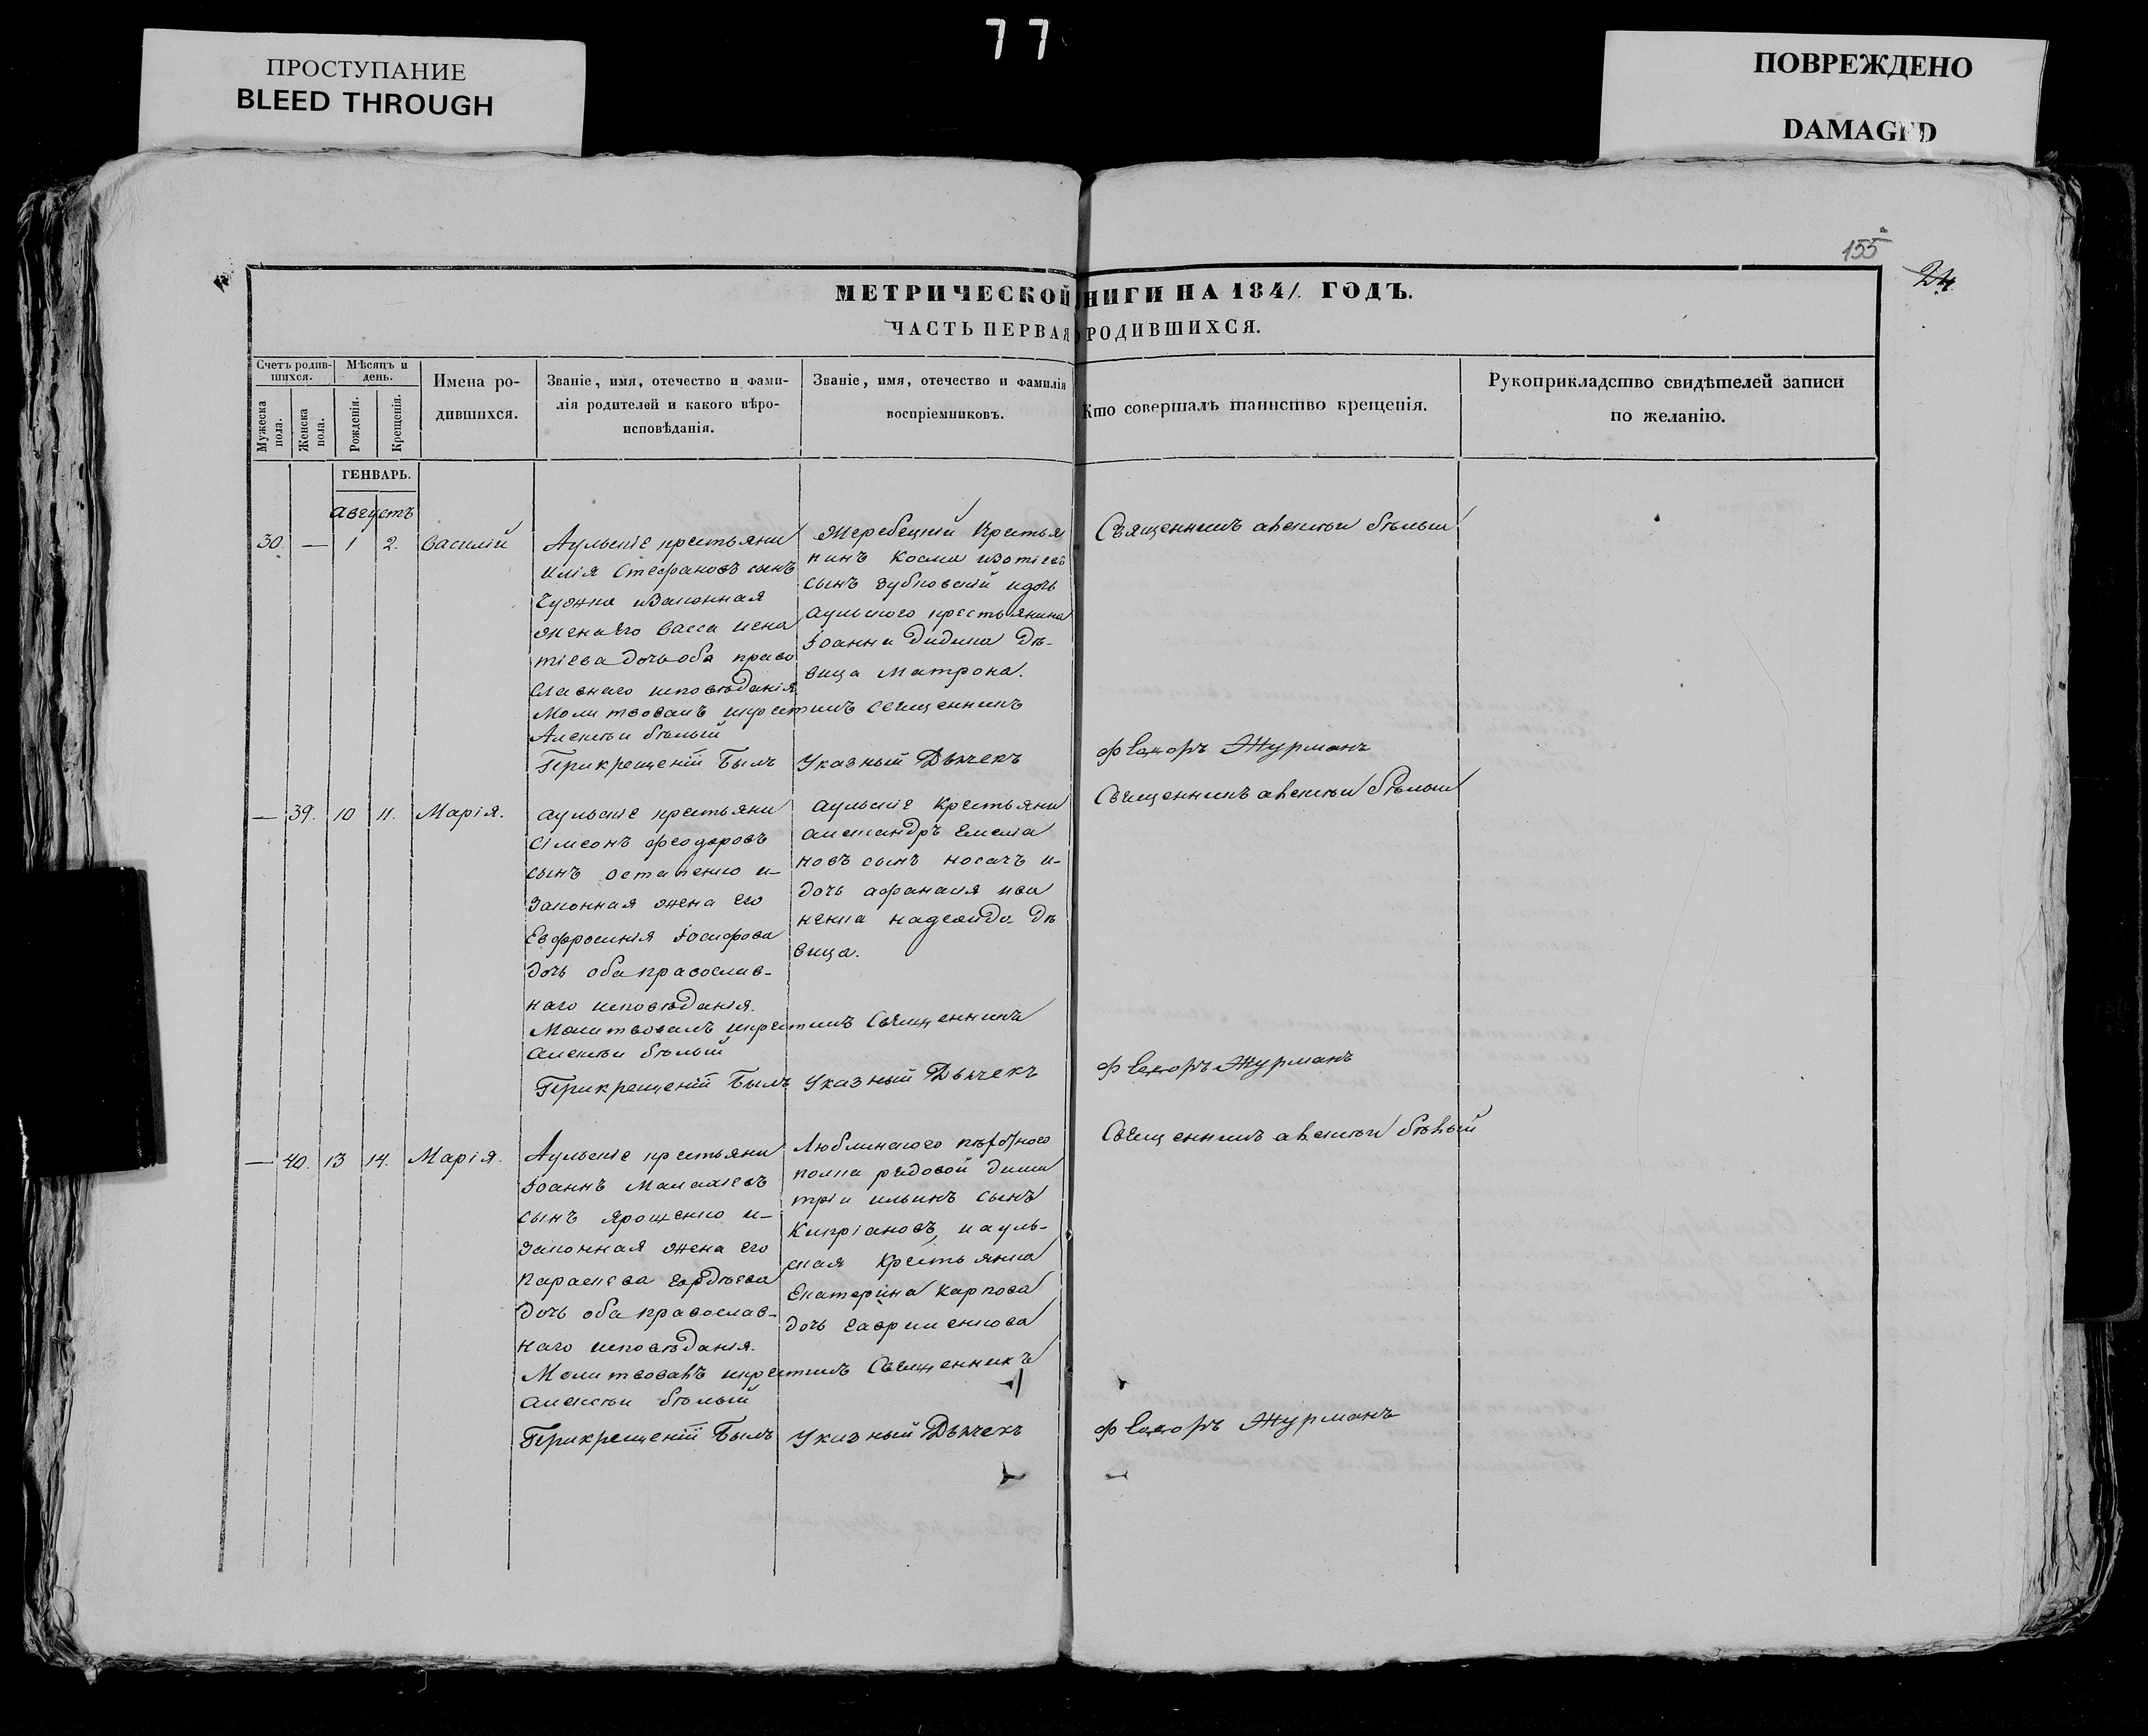 77
ПРОСТУПАНИЕ
BLEED THROUGH
ПОВРЕЖДЕНО
DAMAGED
155
24
МЕТРИЧЕСКОЙ НИГИ НА 1841. ГОДЪ.
ЧАСТЬ ПЕРВАЯ О РОДИВШИХСЯ.
Счетъ родив-
шихся.
Мужеска пола.
Женска пола.
Мѣсяцъ и
день.
Рожденія.
Крещенія.
Имена ро-
дившихся.
Званіе, имя, отечество и фами-
лія родителей и какого вѣро-
исповѣданія.
Званіе, имя, отечество и фамилія
воспріемниковъ.
Кто совершалъ таинство крещенія.
Рукоприкладство свидѣтелей записи
по желанію.
ГЕНВАРЬ.
августъ
30. — 1 2. Василій
Аульскіе крестьяни
Илія Стефановъ сынъ
Чужко изаконная
женаЕго Васса
тіева дочь оба право
славнаго исповѣданія
Молитвовалъ икрестилъ священникъ
Алексѣй бѣлый
Жеребецкій Крестья
нинъ Косма
сынъ Зубковскій идочь
аульского крестьянина
Іоанна Дидика дѣ-
вица Матрона.
Священникъ алексѣй бѣлый
Прикрещеніи Былъ Указный Дьячекъ
Феодоръ Журманъ
— 39. 10 11. Марія.
аульскіе крестьяни
Сімеонъ феодоровъ
сынъ остапенко и-
законная жена его
Евфросинія Іосифова
дочь оба православ-
наго исповѣданія.
Молитвовалъ икрестилъ Священникъ
алексѣй бѣлый
аульскіе Крестьяни
александръ Емелиа
новъ сынъ носачъ и-
дочь афанасія ива
ненка надежда дѣ
вица.
Священникъ алексѣй бѣлый
Прикрещеніи Былъ Указный Дьячекъ
Феодоръ Журманъ
— 40. 13 14. Марія.
Аульскіе крестьяни
Іоаннъ Малахіевъ
сынъ Ярощенко и-
законная жена его
Параскева гордѣева
дочь оба православ-
наго исповѣданія.
Молитвовалъ икрестилъ Священникъ
алексѣй бѣлый
Люблинского пѣхотного
полка рядовой дими
трій ильинъ сынъ
Кипріановъ, иауль-
ская Крестьянка
Екатерина Карпова
дочь гавриленкова
Священникъ алексѣй бѣлый
Прикрещеніи Былъ Указный Дьячекъ
Феодоръ Журманъ